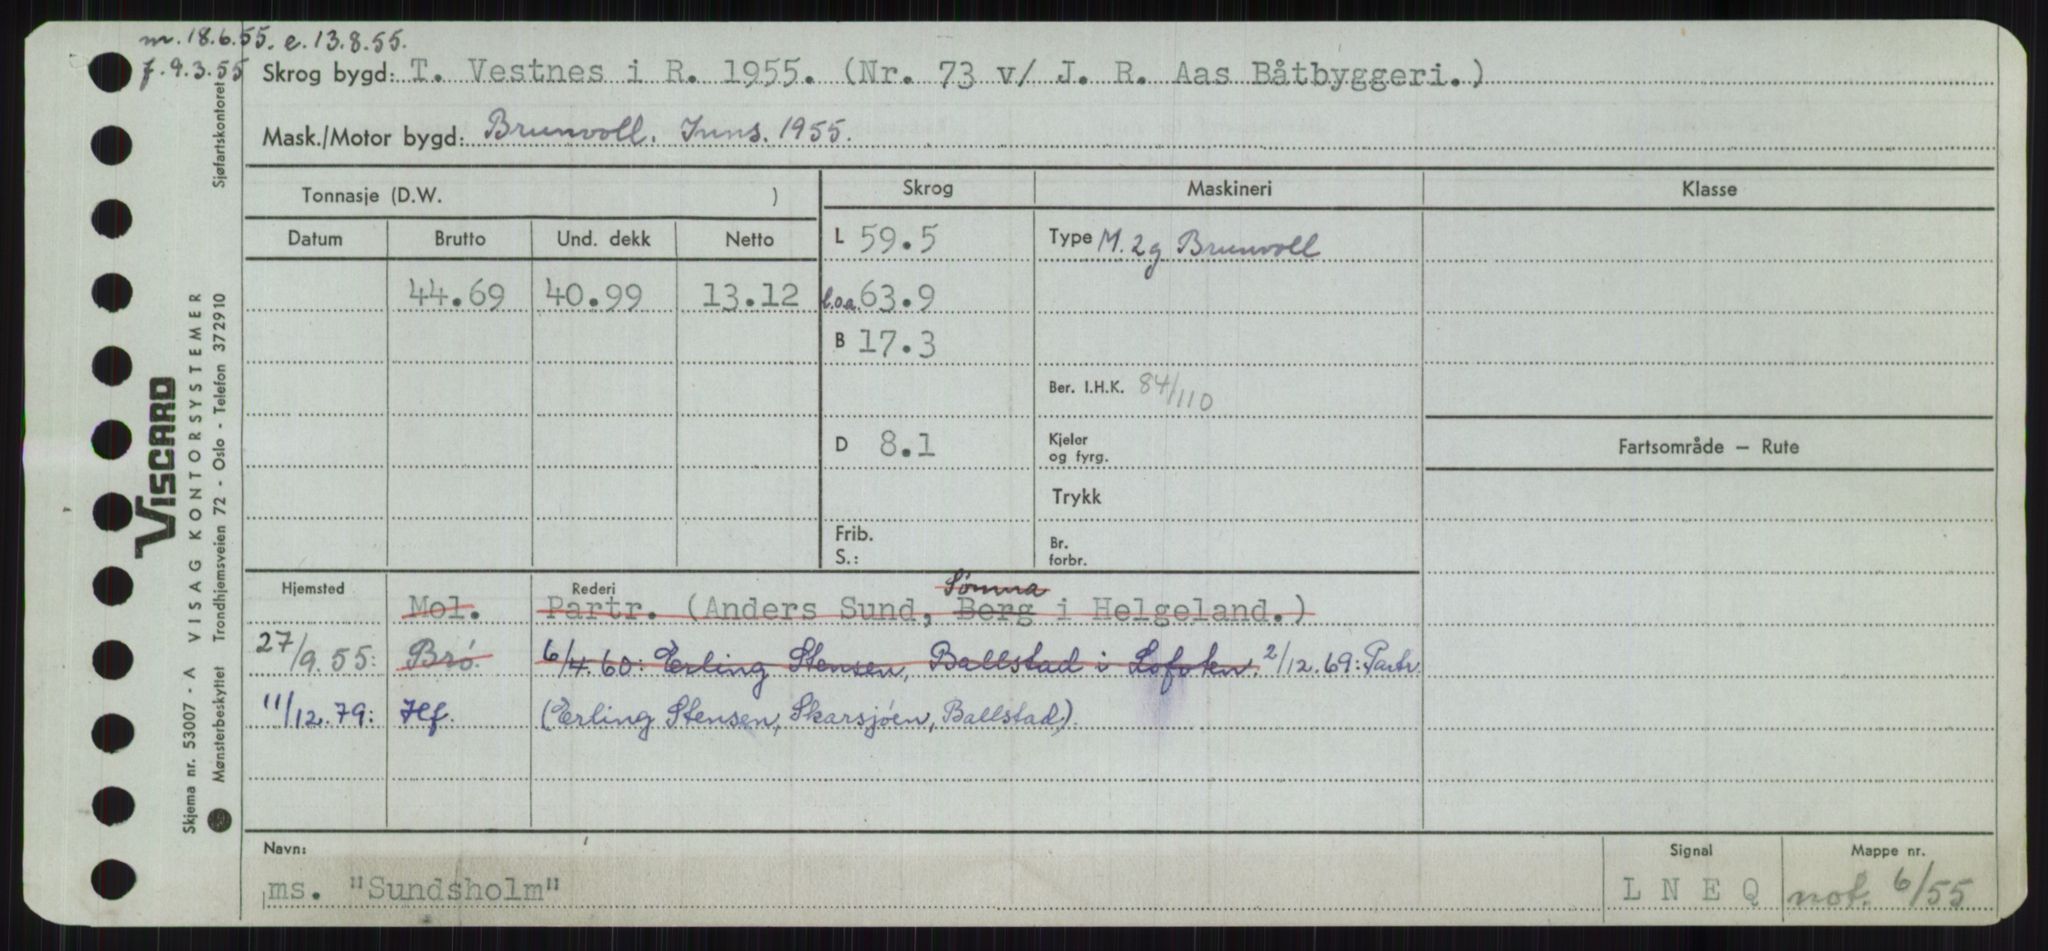 m. 18.6.55. e. 13.8.55.
f. 9.3.55 Skrog bygd: T. Vestnes i R. 1955. (Nr. 73 v/ J. R. Aas Båtbyggeri.)
Mask./Motor bygd: Brunvoll. Inns. 1955.
Tonnasje (D.W. ) Skrog Maskineri Klasse
Datum Brutto Und. dekk Netto L 59.5 Type M. 2g Brunvoll
44.69 40.99 13.12 l.o.a. 63.9
B 17.3
Ber. I.H.K. 84/110
D 8.1 Kjeler og fyrg. Fartsområde — Rute
Trykk
Frib. S.: Br. forbr.
Hjemsted Rederi Sømna
Mol. Partr. (Anders Sund, Berg i Helgeland.)
27/9.55: Brö. 6/4.60: Erling Stensen, Ballstad i Lofoten. 2/12.69: Partr.
11/12.79: Hf. (Erling Stensen, Skarsjöen, Ballstad).
Navn: Signal Mappe nr.
ms. "Sundsholm" L N E Q not. 6/55
VISCARD
Skjema nr. 53007 - A VISAG KONTORSYSTEMER
Mønsterbeskyttet Trondhjemsveien 72 - Oslo - Telefon 372910
Sjøfartskontoret